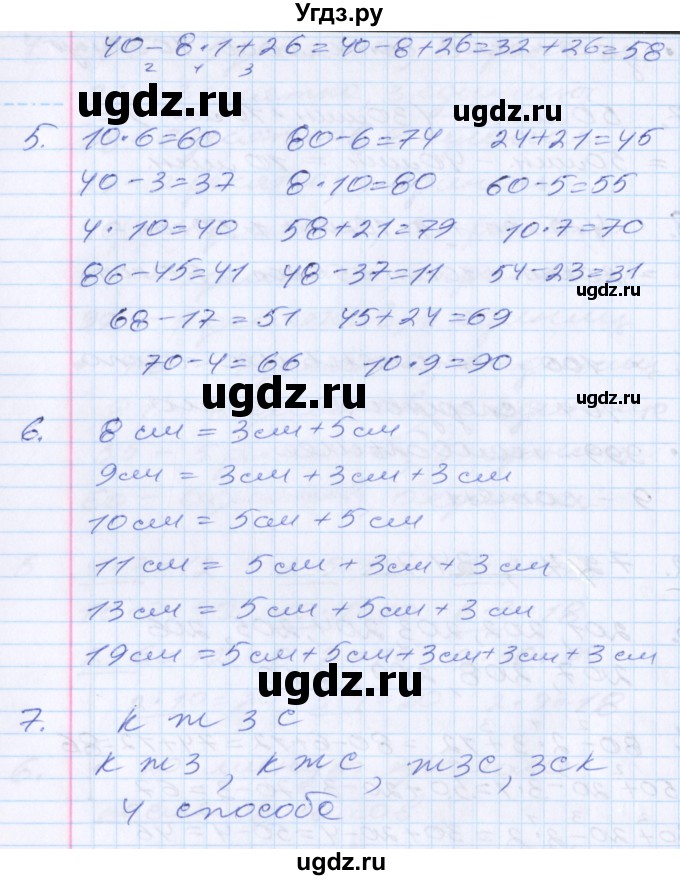 Угдз.ру
40-8·1+26=40-8+26=32+26=58
2 1 3
ugdz.ru ugdz.ru
5. 10·6=60 80-6=74 24+21=45
40-3=37 8·10=80 60-5=55
4·10=40 58+21=79 10·7=70
86-45=41 48-37=11 54-23=31
ugdz.ru
68-17=51 45+24=69
70-4=66 10·9=90
ugdz.ru ugdz.ru
6. 8 см = 3см+5см
9см = 3см+3см+3см
10см = 5см+5см
11см = 5см+3см+3см
13см = 5см+5см+3см
19см =5см+5см+3см+3см+3см
ugdz.ru ugdz.ru
7. к ж з с
кжз, кжс, жзс, зск
4 способа
ugdz.ru ugdz.ru